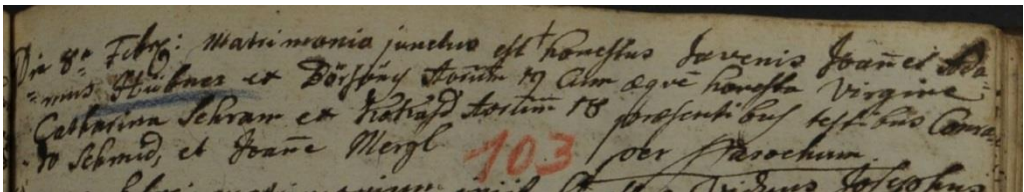 Die 8a Febr: Matrimonio junctus est honestus Juvenis Joanes Ada
=mus Hübner ex Börsöny Anorum 19 Cum aequè honesta Virgine
Catharina Schram ex Kokasd Anorum 18 praesentibus testibus Conra=
do Schmid, et Joane Mergl per Parochum
103